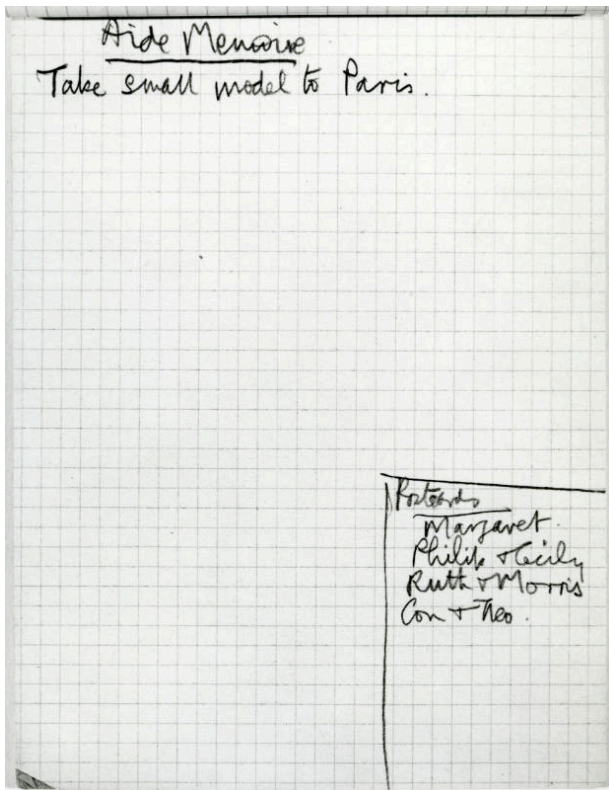 Aide Memoire
Take small model to Paris.
Postcards
Margaret.
Philip + Cicily
Ruth + Morris
Con + Theo.